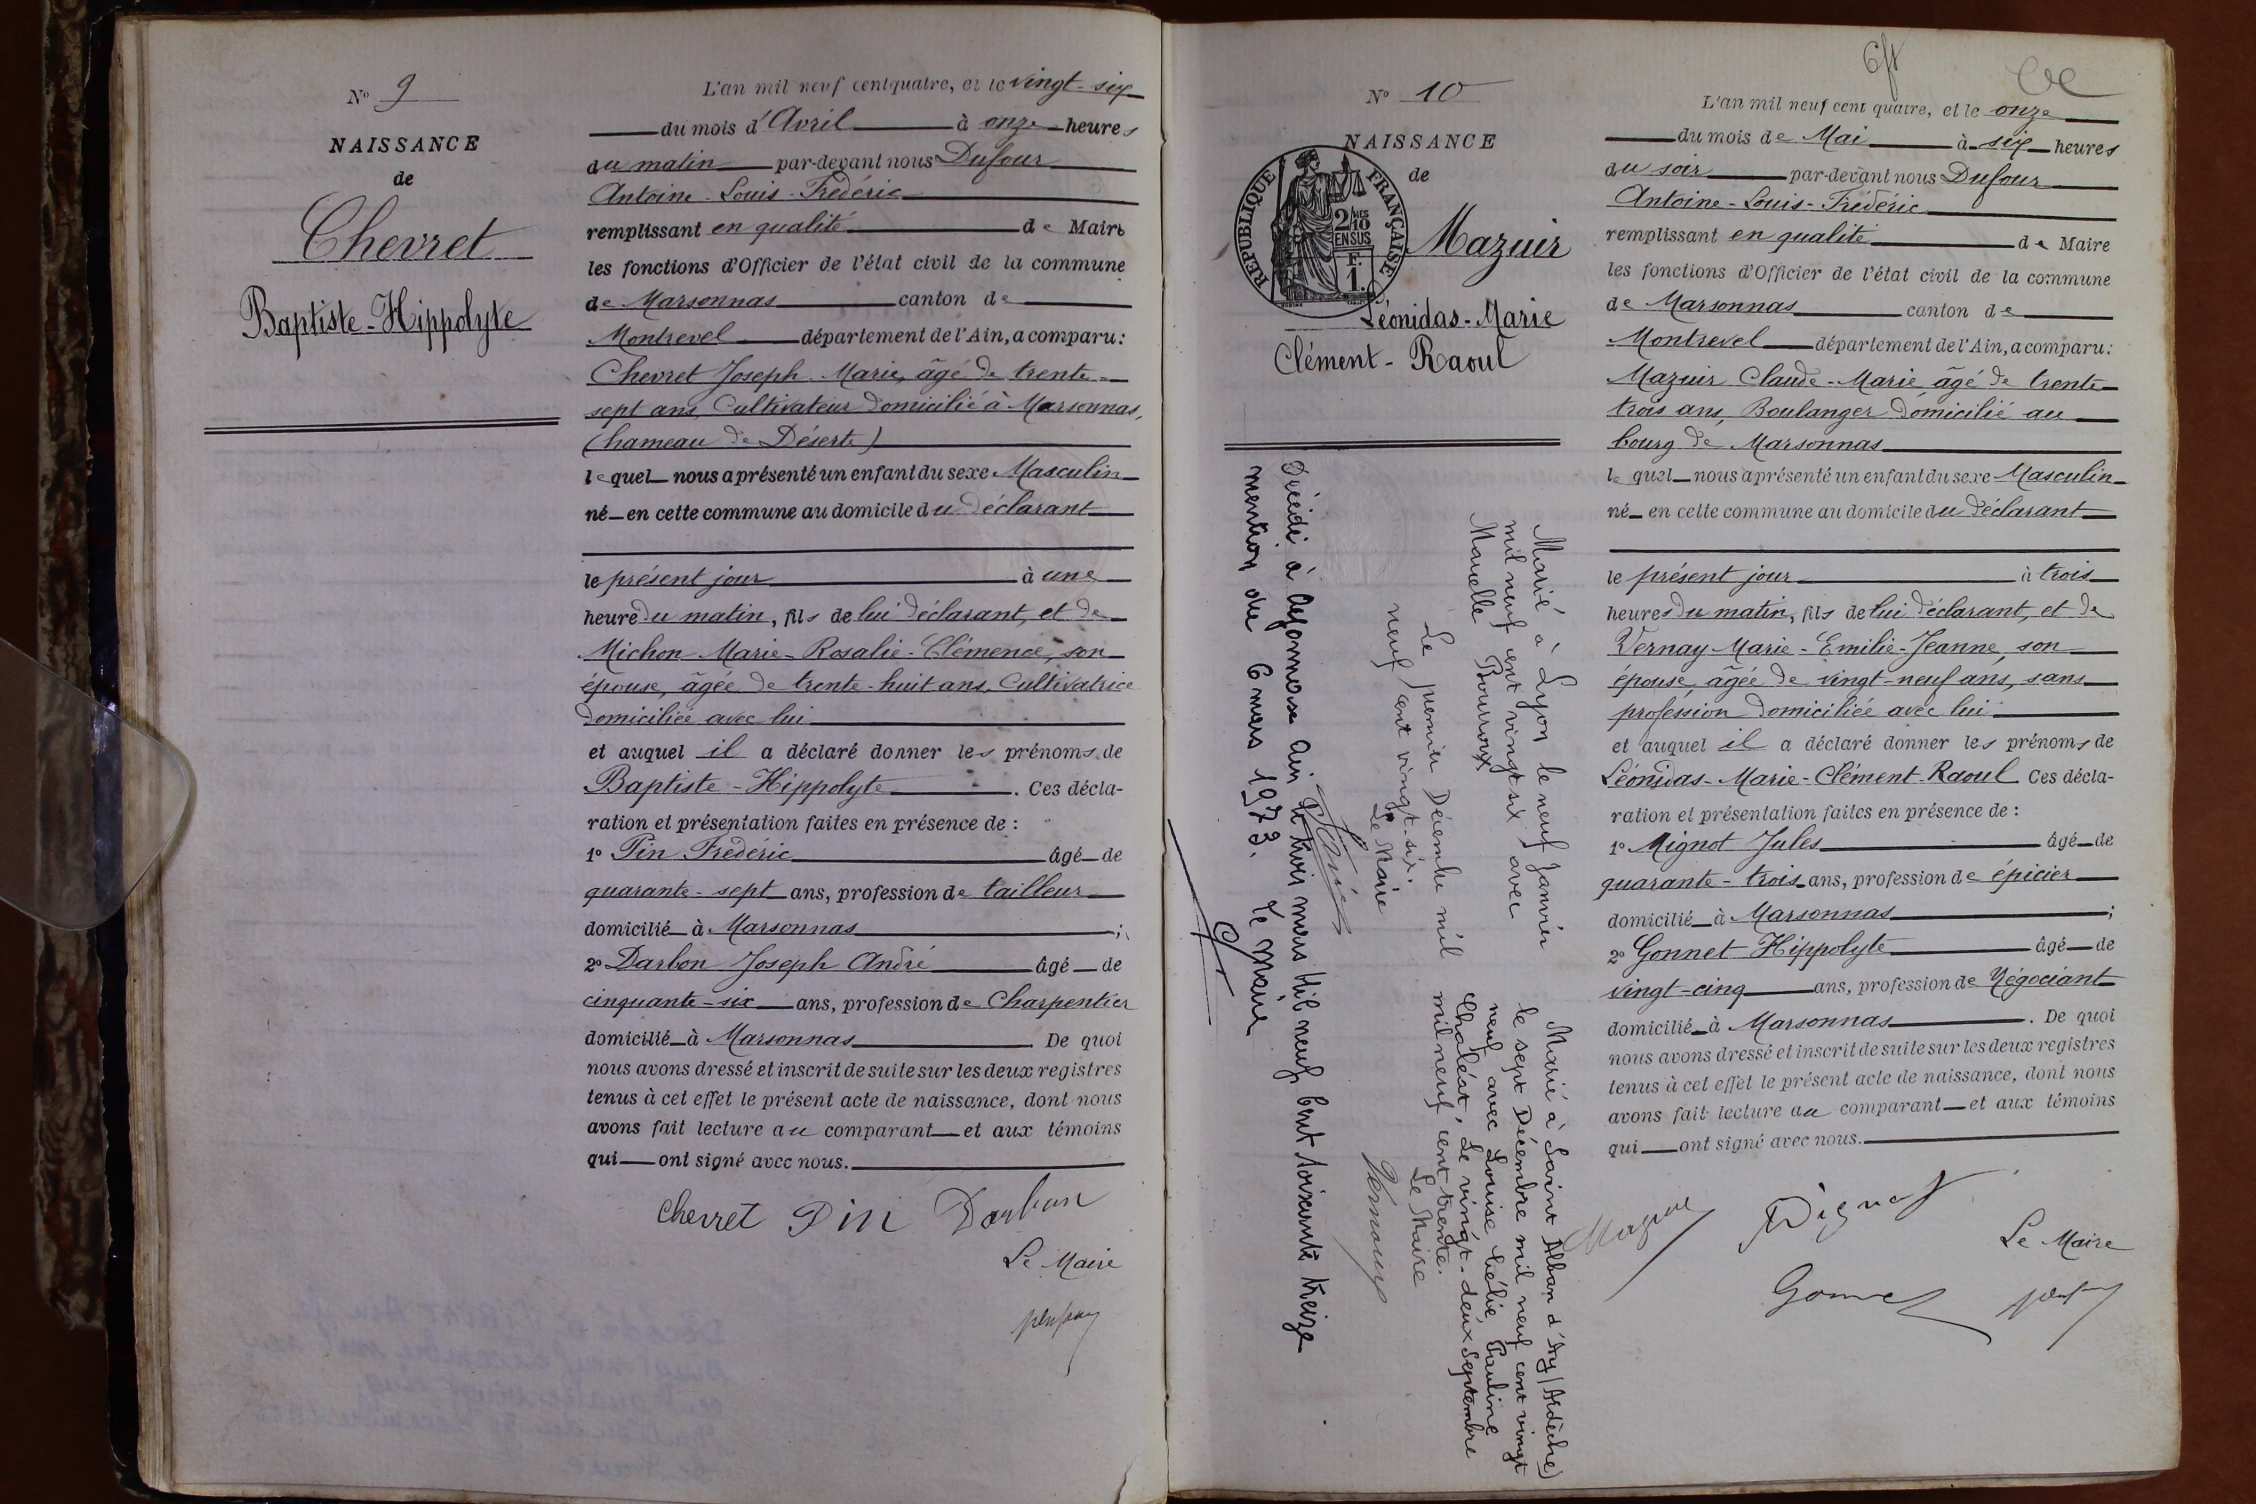 N° 9
NAISSANCE
de
Chevret
Baptiste-Hippolyte
L'an mil neuf cent quatre, et le vingt-six
du mois d'Avril à onze heures
du matin par-devant nous Dufour
Antoine-Louis-Frédéric
remplissant en qualité de Maire
les fonctions d'Officier de l'état civil de la commune
de Marsonnas canton de
Montrevel département de l'Ain, a comparu:
Chevret Joseph-Marie, âgé de trente-
sept ans, Cultivateur domicilié à Marsonnas,
(hameau de Déserte)
lequel nous a présenté un enfant du sexe Masculin
né en cette commune au domicile du déclarant
le présent jour à une
heure du matin, fils de lui déclarant, et de
Michon Marie-Rosalie-Clémence, son
épouse, âgée de trente-huit ans, Cultivatrice
domiciliée avec lui
et auquel il a déclaré donner les prénoms de
Baptiste-Hippolyte. Ces décla-
ration et présentation faites en présence de :
1° Pin Frédéric âgé de
quarante-sept ans, profession de tailleur
domicilié à Marsonnas ;
2° Darbon Joseph André âgé de
cinquante-six ans, profession de Charpentier
domicilié à Marsonnas. De quoi
nous avons dressé et inscrit de suite sur les deux registres
tenus à cet effet le présent acte de naissance, dont nous
avons fait lecture au comparant et aux témoins
qui ont signé avec nous.
Chevret Pin Darbon
Le Maire
N° 10
NAISSANCE
de
REPUBLIQUE FRANÇAISE
2/10 EN SUS
F.
1.
Mazuir
Léonidas-Marie
Clément-Raoul
Marié à Lyon le neuf Janvier
mil neuf cent vingt six avec
Marcelle Bourroux
Le premier Décembre mil
neuf cent vingt-six.
Le Maire
Marié à Saint Alban d'Ay (Ardèche)
le sept Décembre mil neuf cent vingt
neuf avec Louise Célie Pauline
Chaléat, Le vingt-deux Septembre
mil neuf cent trente.
Le Maire
Décédé à Oyonnax Ain le trois mars Mil neuf Cent soixante treize
mention du 6 mars 1973. Le Maire
L'an mil neuf cent quatre, et le onze
du mois de Mai à six heures
du soir par-devant nous Dufour
Antoine-Louis-Frédéric
remplissant en qualité de Maire
les fonctions d'Officier de l'état civil de la commune
de Marsonnas canton de
Montrevel département de l'Ain, a comparu:
Mazuir Claude-Marie âgé de trente-
trois ans, Boulanger domicilié au
bourg de Marsonnas
lequel nous a présenté un enfant du sexe Masculin
né en cette commune au domicile du déclarant
le présent jour à trois
heures du matin, fils de lui déclarant, et de
Vernay Marie-Emilie-Jeanne, son
épouse, âgée de vingt-neuf ans, sans
profession domiciliée avec lui
et auquel il a déclaré donner les prénoms de
Léonidas-Marie-Clément-Raoul Ces décla-
ration et présentation faites en présence de :
1° Mignot Jules âgé de
quarante-trois ans, profession de épicier
domicilié à Marsonnas ;
2° Gonnet Hippolyte âgé de
vingt-cinq ans, profession de Négociant
domicilié à Marsonnas. De quoi
nous avons dressé et inscrit de suite sur les deux registres
tenus à cet effet le présent acte de naissance, dont nous
avons fait lecture au comparant et aux témoins
qui ont signé avec nous.
Mignot
Le Maire
Gonnet